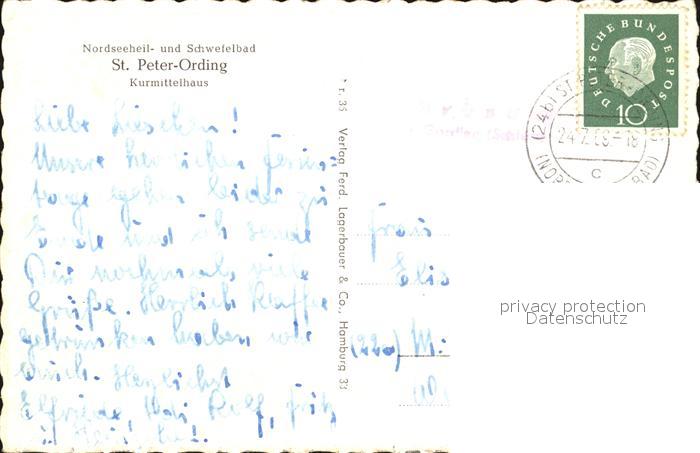 Nordseeheil- und Schwefelbad
St. Peter-Ording
Kurmittelhaus
Liebe Lieschen!
Unsere herrlichen Ferien-
tage gehen leider zu
Ende und ich sende
Dir nochmals viele
Grüße. Herrlich Kaffee
getrunken haben wir
auch. Herzlichst
Elfriede, Rolf, Fritz
r. 35 Verlag Ferd. Lagerbauer & Co., Hamburg 33
Frau
Elis
(22a) M.
DEUTSCHE BUNDESPOST
10
(24b) ST
24.7.
18
c
(NORD BAD)
privacy protection
Datenschutz